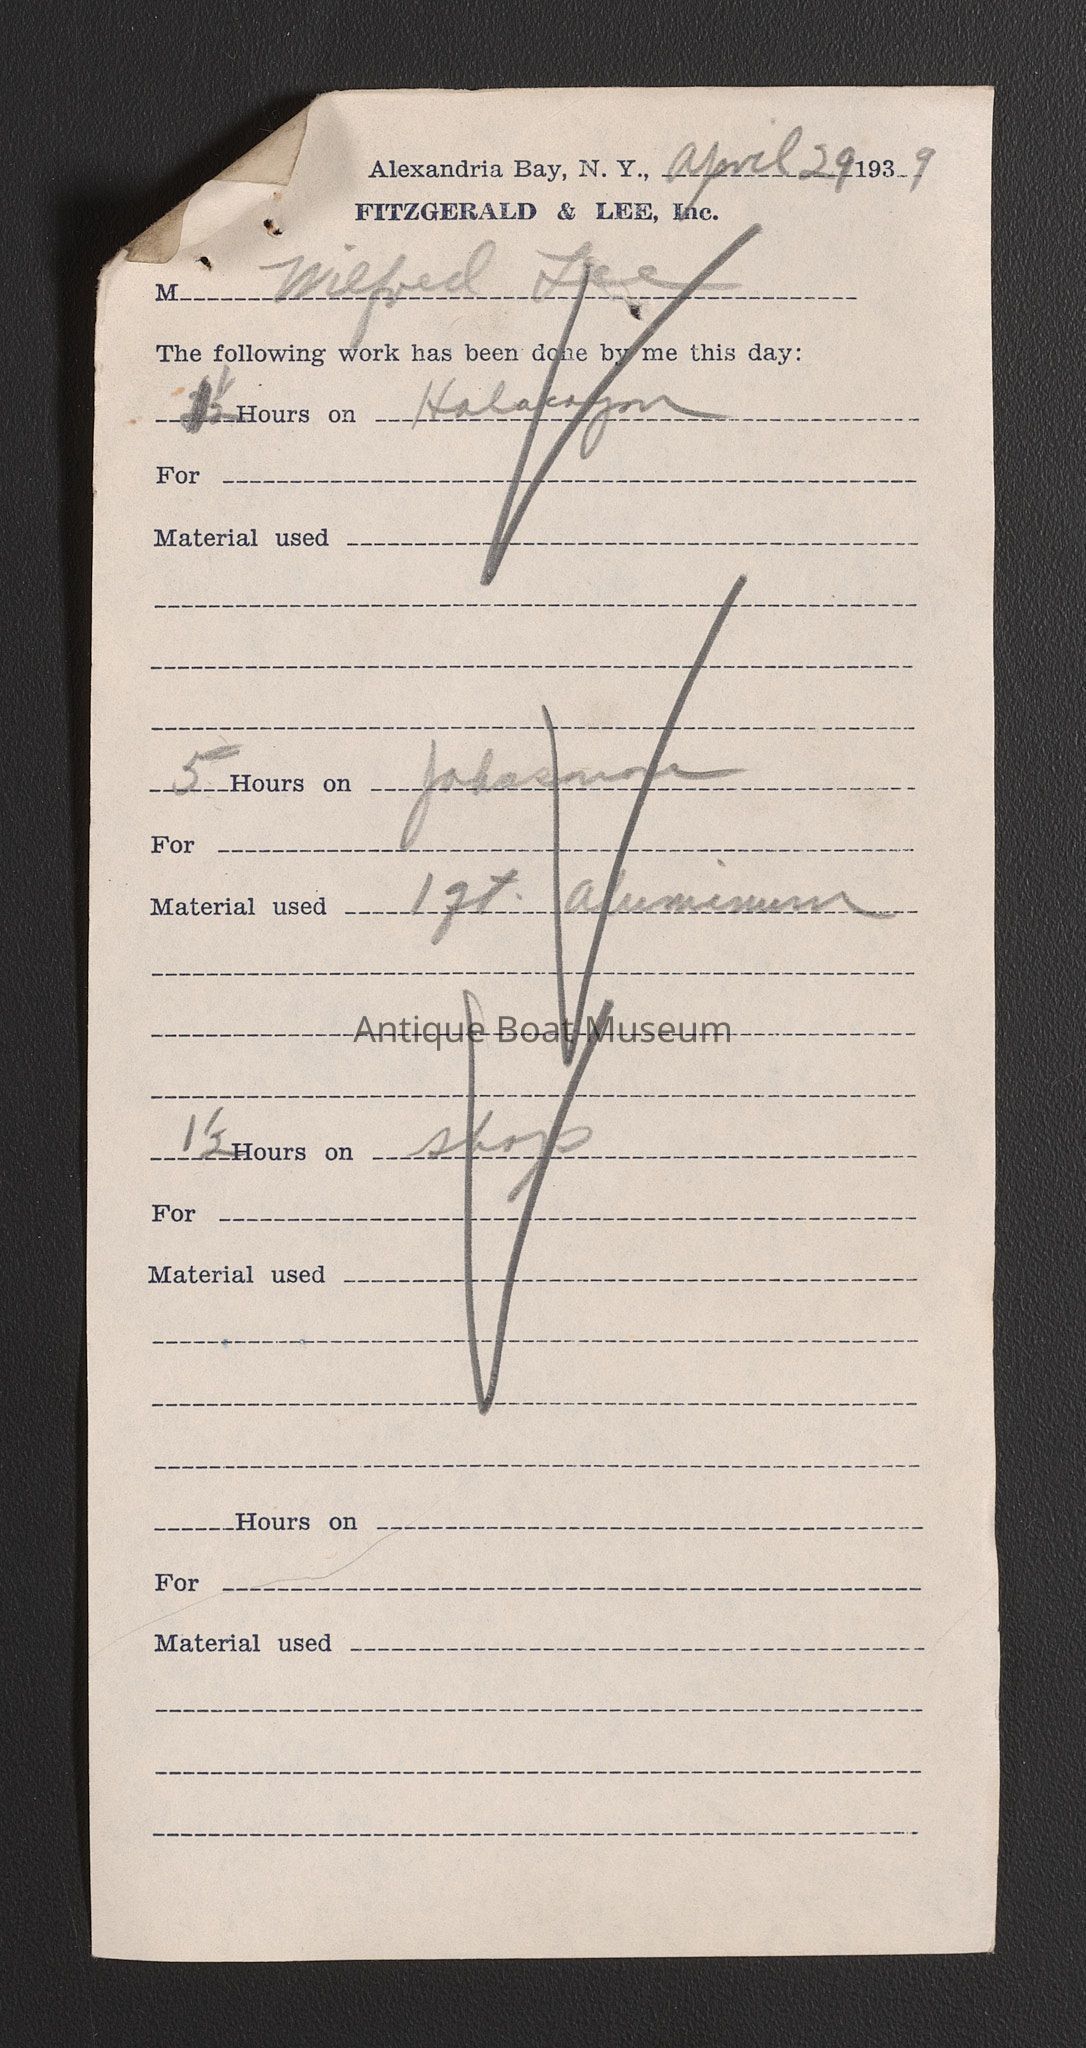 Alexandria Bay, N. Y., April 29 1939
FITZGERALD & LEE, Inc.
M Wilfred Lee
The following work has been done by me this day:
1½ Hours on
For
Material used
5 Hours on
For
Material used 1 qt. aluminum
Antique Boat Museum
1½ Hours on shop
For
Material used
Hours on
For
Material used